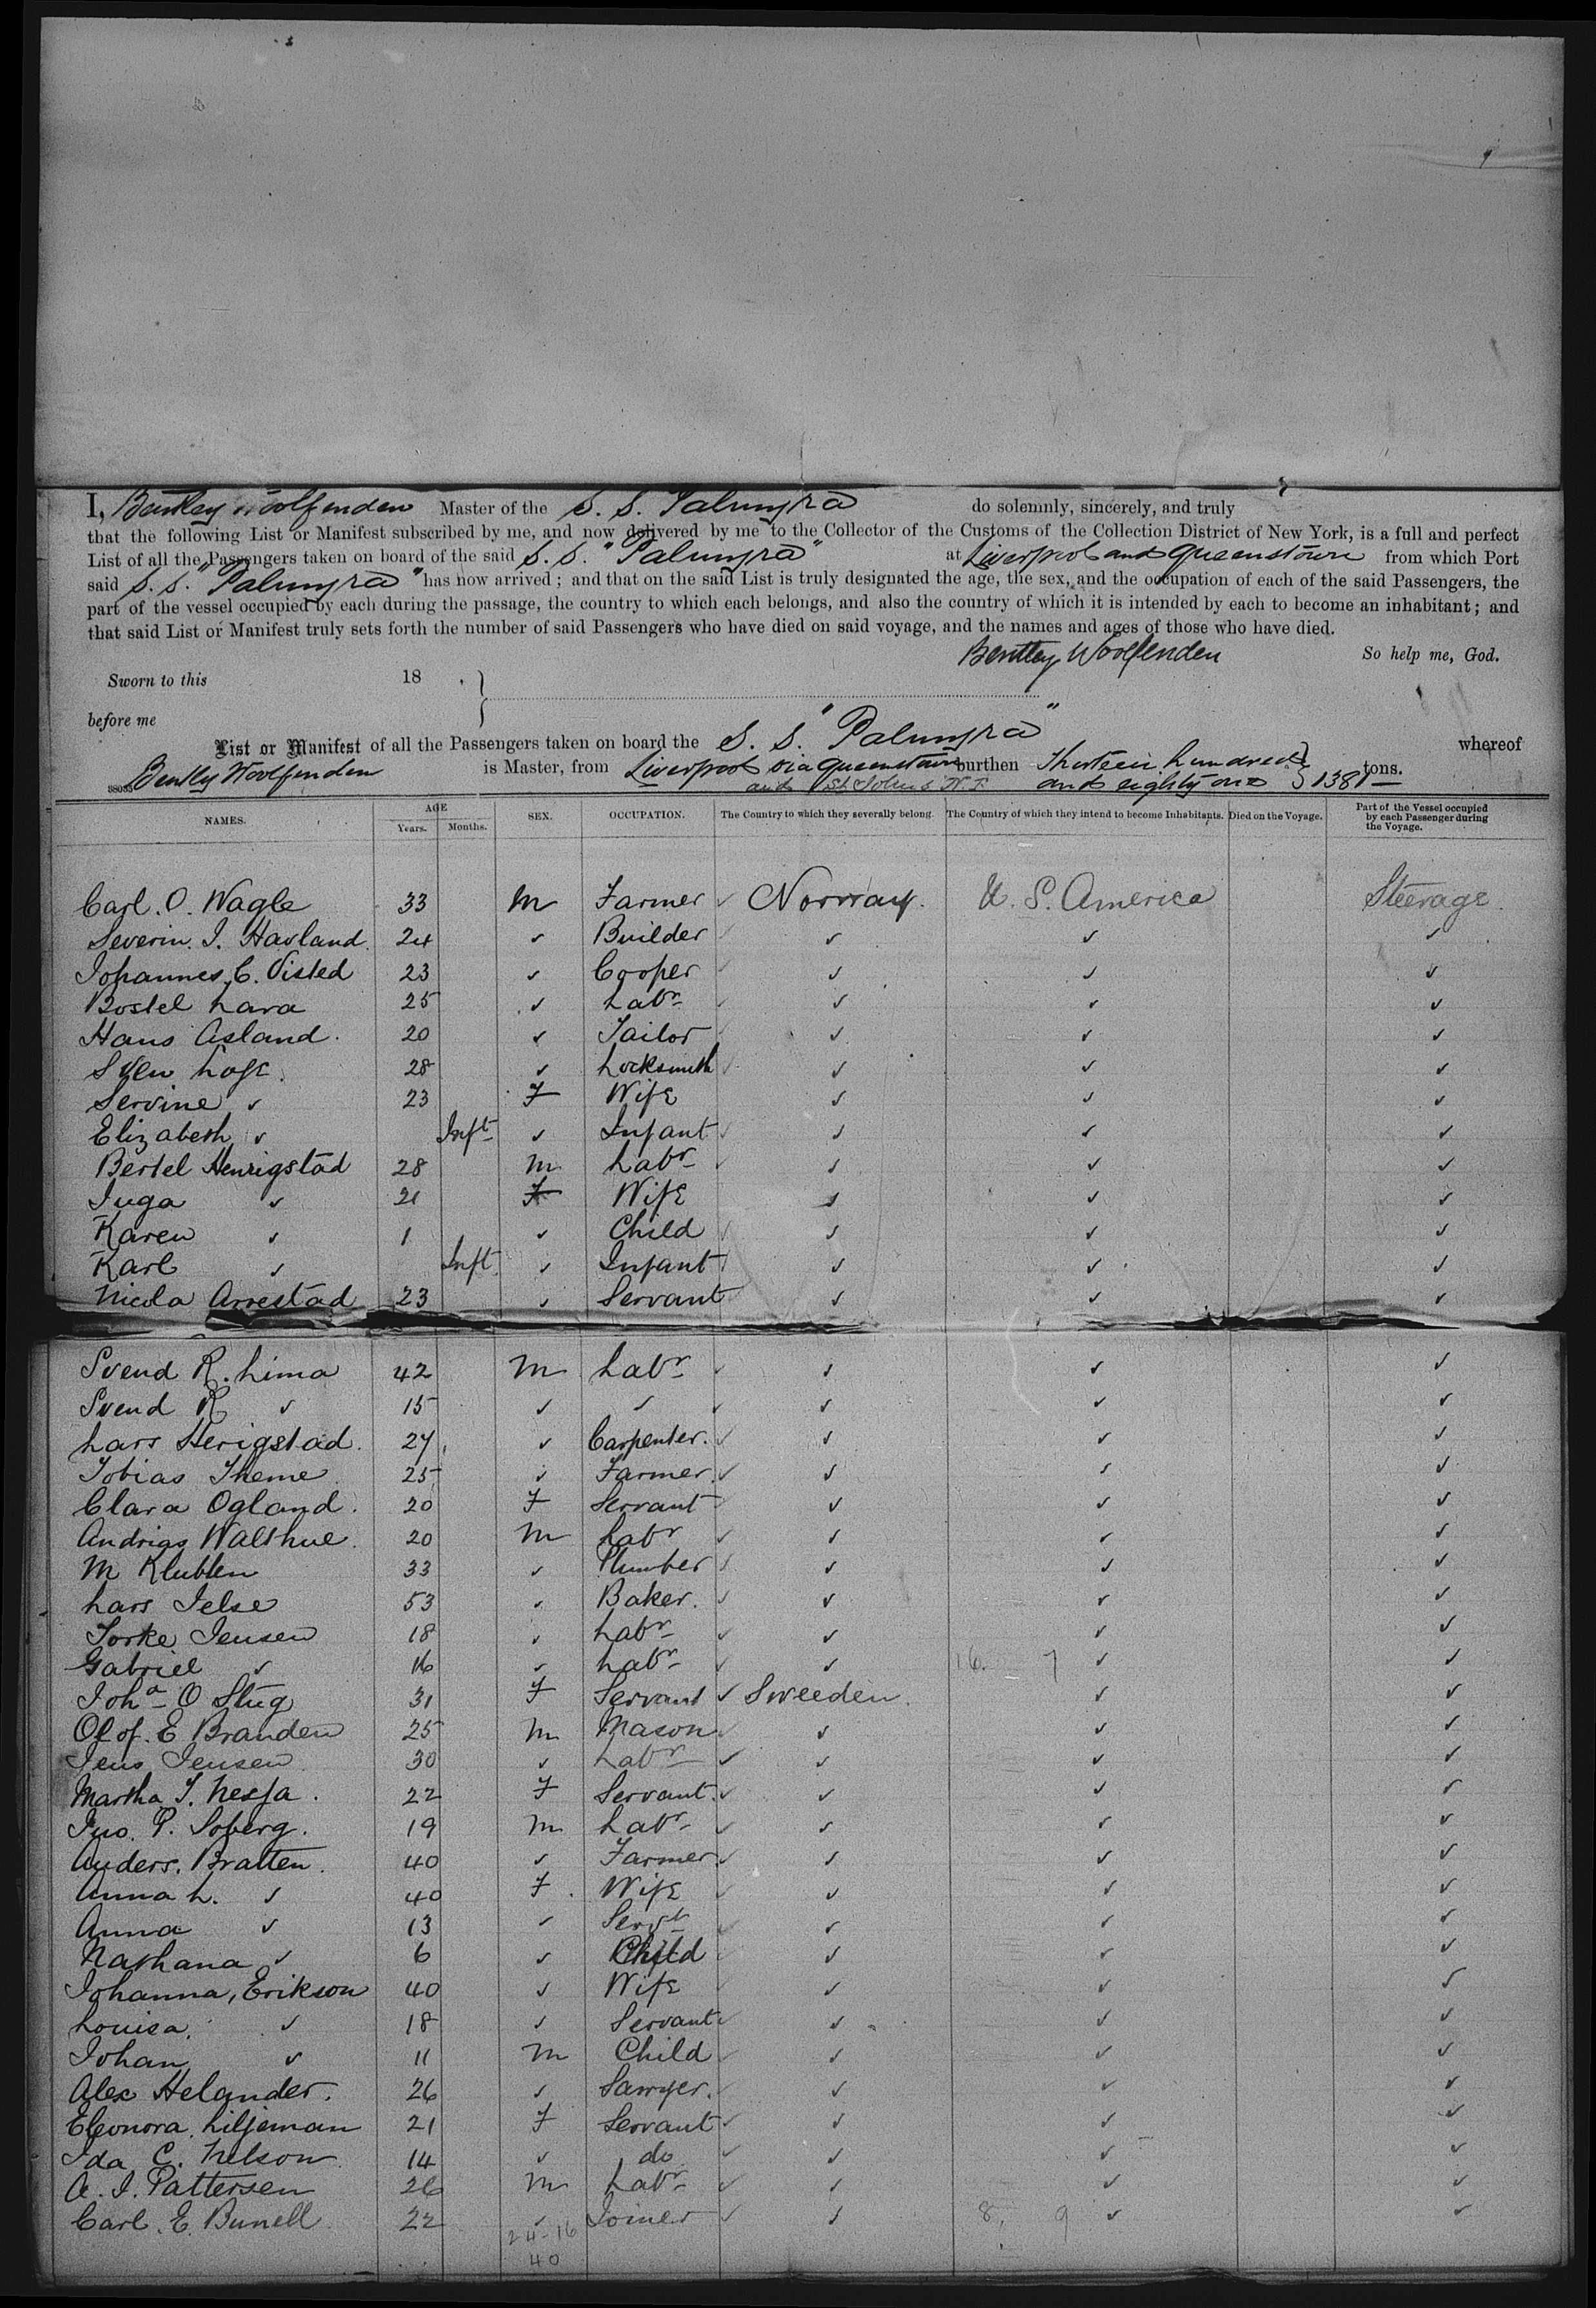 I, Bentley Woolfenden Master of the S. S. Palmyra do solemnly, sincerely, and truly
that the following List or Manifest subscribed by me, and now delivered by me to the Collector of the Customs of the Collection District of New York, is a full and perfect
List of all the Passengers taken on board of the said S. S. "Palmyra" at Liverpool and Queenstown from which Port
said S. S. "Palmyra" has now arrived; and that on the said List is truly designated the age, the sex, and the occupation of each of the said Passengers, the
part of the vessel occupied by each during the passage, the country to which each belongs, and also the country of which it is intended by each to become an inhabitant; and
that said List or Manifest truly sets forth the number of said Passengers who have died on said voyage, and the names and ages of those who have died.
Bentley Woolfenden So help me, God.
Sworn to this 18 .
before me
List or Manifest of all the Passengers taken on board the S. S. "Palmyra" whereof
Bentley Woolfenden is Master, from Liverpool via Queenstown burthen Thirteen hundred } 1381 - tons.
and St Johns N. F. and eighty one
NAMES. AGE Years. Months. SEX. OCCUPATION. The Country to which they severally belong. The Country of which they intend to become Inhabitants. Died on the Voyage. Part of the Vessel occupied by each Passenger during the Voyage.
Carl. O. Wagle 33 M Farmer ✓ Norway. U. S. America Steerage.
Severin. I. Havland 24 ✓ Builder ✓ ✓ ✓ ✓
Johannes. C. Visted 23 ✓ Cooper ✓ ✓ ✓ ✓
Bostel Lara 25 ✓ Labr ✓ ✓ ✓ ✓
Hans Asland. 20 ✓ Tailor ✓ ✓ ✓ ✓
Sven Loge. 28 ✓ Locksmith ✓ ✓ ✓ ✓
Servine ✓ 23 F Wife ✓ ✓ ✓
Elizabeth ✓ Inft ✓ Infant ✓ ✓ ✓ ✓
Bertel Henrigstad 28 M Labr ✓ ✓ ✓ ✓
Inga ✓ 21 F Wife ✓ ✓ ✓
Karen ✓ 1 ✓ Child ✓ ✓ ✓ ✓
Karl ✓ Inft ✓ Infant ✓ ✓ ✓ ✓
Nicola Arrestad 23 ✓ Servant ✓ ✓ ✓
Svend R. Lima 42 M Labr ✓ ✓ ✓ ✓
Svend R ✓ 15 ✓ ✓ ✓ ✓ ✓ ✓
Lars Herigstad. 27 ✓ Carpenter. ✓ ✓ ✓ ✓
Tobias Theme 25 ✓ Farmer. ✓ ✓ ✓ ✓
Clara Ogland. 20 F Servant ✓ ✓ ✓
Andrias Walthue. 20 M Labr ✓ ✓ ✓ ✓
M Klubben 33 ✓ Plumber ✓ ✓ ✓ ✓
Lars Ielse 53 ✓ Baker. ✓ ✓ ✓ ✓
Torke Jensen 18 ✓ Labr ✓ ✓ ✓ ✓
Gabriel ✓ 16 ✓ Labr ✓ ✓ 16. 7 ✓ ✓
Joha O Stug 31 F Servant ✓ Sweeden. ✓ ✓
Olof. E Branden 25 M Mason ✓ ✓ ✓ ✓
Jens Jensen 30 ✓ Labr ✓ ✓ ✓ ✓
Martha T. Nesja. 22 F Servant. ✓ ✓ ✓ ✓
Jno. P. Soberg. 19 M Labr ✓ ✓ ✓ ✓
Anders. Bratten. 40 ✓ Farmer ✓ ✓ ✓ ✓
Anna L. ✓ 40 F. Wife ✓ ✓ ✓ ✓
Anna ✓ 13 ✓ Servt ✓ ✓ ✓ ✓
Nathana ✓ 6 ✓ Child ✓ ✓ ✓ ✓
Johanna, Erikson 40 ✓ Wife ✓ ✓ ✓ ✓
Louisa, ✓ 18 ✓ Servant ✓ ✓ ✓ ✓
Johan ✓ 11 M Child ✓ ✓ ✓ ✓
Alex Helander. 26 ✓ Sawyer. ✓ ✓ ✓ ✓
Eleonora. Liljeman 21 F Servant ✓ ✓ ✓ ✓
Ida C. Nelson 14 ✓ do ✓ ✓ ✓ ✓
A. I. Pattersen 26 M Labr ✓ ✓ ✓ ✓
Carl. E. Bunell 22 ✓ Joiner ✓ ✓ 8. 9 ✓ ✓
24-16
40